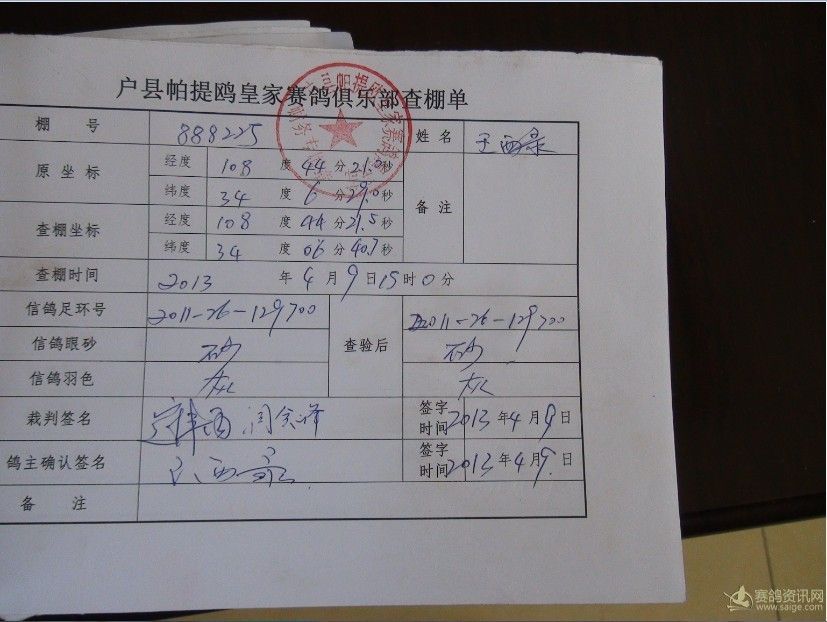 户县帕提鸥皇家赛鸽俱乐部查棚单
棚 号 888225 姓 名 王西录
原坐标 经度 108 度 44 分 21.0 秒 备 注
纬度 34 度 6 分 29.0 秒
查棚坐标 经度 108 度 44 分 21.5 秒
纬度 34 度 06 分 40.7 秒
查棚时间 2013 年 4 月 9 日 15 时 0 分
信鸽足环号 2011-26-129700 查验后 2011-26-129700
信鸽眼砂 砂 砂
信鸽羽色 灰 灰
裁判签名 签字时间 2013 年 4 月 9 日
鸽主确认签名 王西录 签字时间 2013 年 4 月 9 日
备 注
赛鸽资讯网
www.saige.com